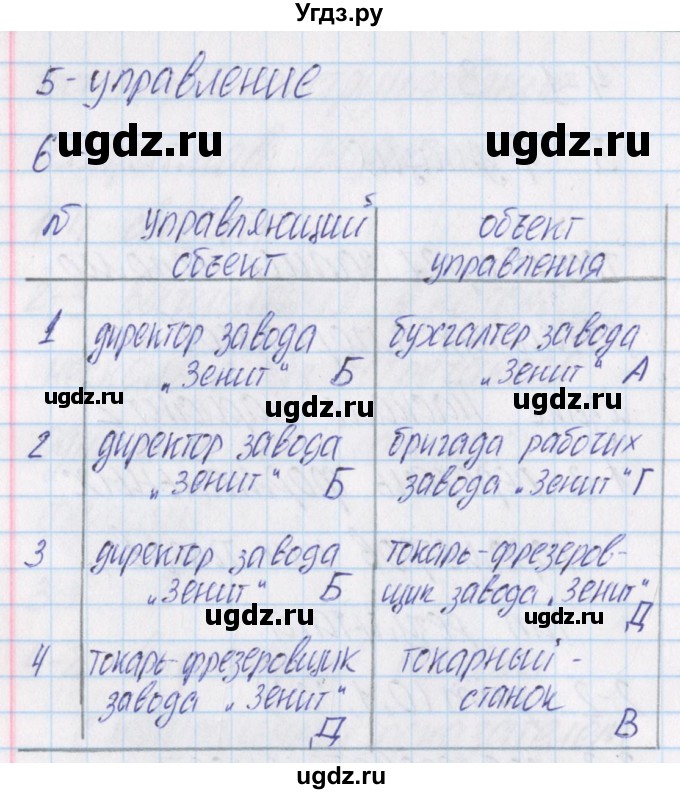 Угдз.ру
5-управление
6
ugdz.ru ugdz.ru
№ управляющий объект объект управления
1 директор завода бухгалтер завода
„Зенит“ Б „Зенит“ А
ugdz.ru ugdz.ru ugdz.ru
2 директор завода бригада рабочих
„Зенит“ Б завода „Зенит“ Г
3 директор завода токарь-фрезеров-
„Зенит“ Б щик завода „Зенит“
ugdz.ru ugdz.ru Д
4 токарь-фрезеровщик токарный -
завода „Зенит“ станок
Д В
ugdz.ru